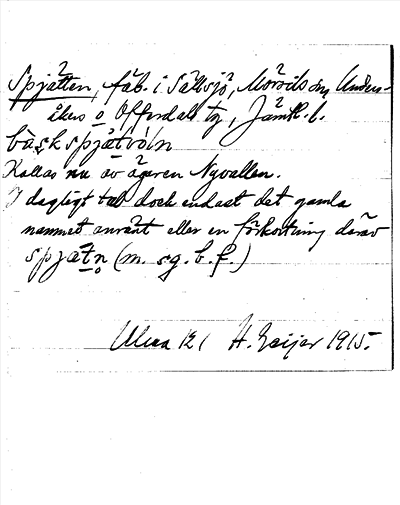 Spjätten, fäb. i Sällsjö, Mörsils sn, Unders-
åkers o Offerdals tg, Jämtl. l.
bàskspjàtvòln
Kallas nu av ägaren Nyvallen.
I dagligt tal doch endast det gamla
namnet använt eller en förkortning därav
spjætn (m. sg. b. f.)
Ulma 121 H. Geijer 1915.